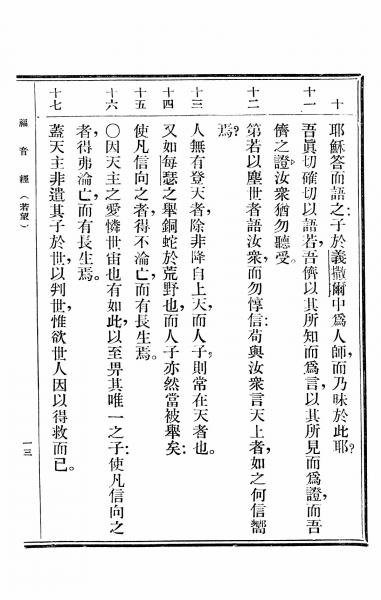 十 耶穌答而語之：子於義撒爾中爲人師，而乃昧於此耶？
十一 吾眞切確切以語若，吾儕以其所知而爲言，以其所見而爲證，而吾
儕之證，汝衆猶勿聽受。
十二 第若以塵世者語汝衆，而勿惇信：苟與汝衆言天上者，如之何信嚮
焉？
十三 人無有登天者，除非降自上天，而人子，則常在天者也。
十四 又如每瑟之舉銅蛇於荒野也，而人子亦然當被舉矣：
十五 使凡信向之者，得不淪亡，而有長生焉。
十六 〇因天主之愛憐世宙也有如此，以至畀其唯一之子：使凡信向之
者，得弗淪亡，而有長生焉。
十七 蓋天主非遣其子於世，以判世，惟欲世人因以得救而已。
福音經（若望） 一三